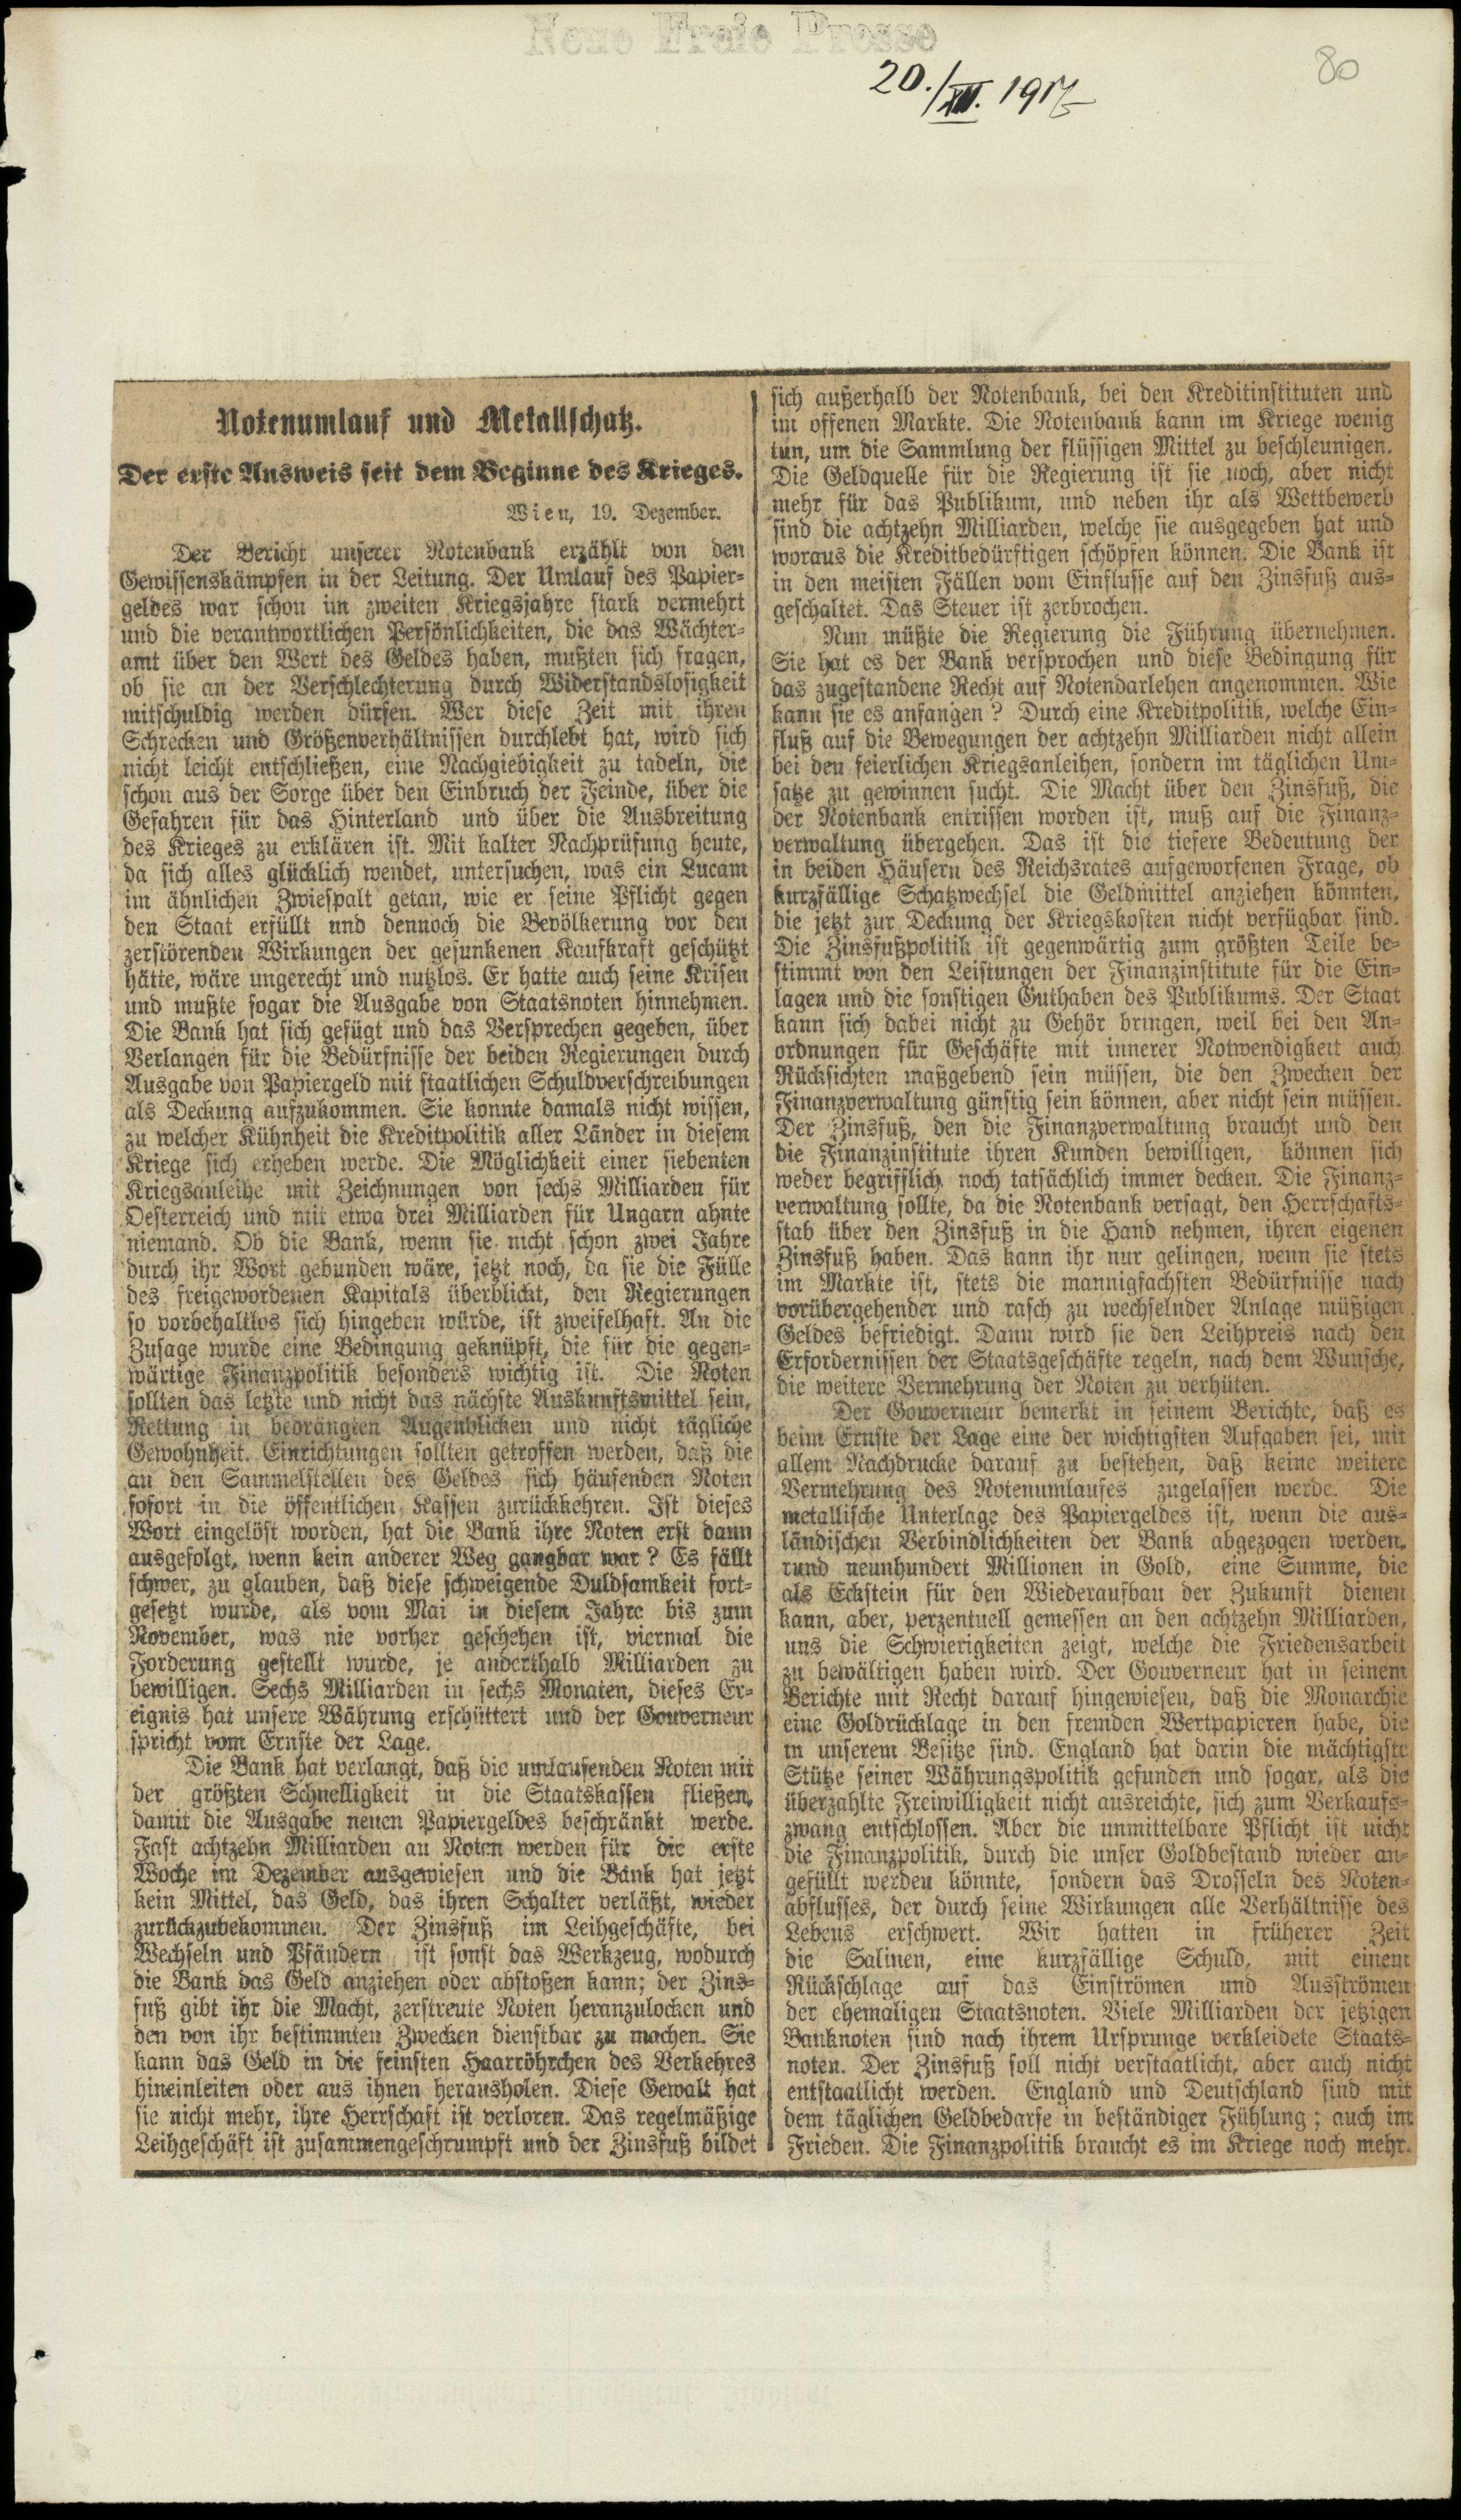 Neue Freie Presse
20./XII. 1917
80
Notenumlauf und Metallschatz.
Der erste Ausweis seit dem Beginne des Krieges.
Wien, 19. Dezember.
Der Bericht unserer Notenbank erzählt von den
Gewissenskämpfen in der Leitung. Der Umlauf des Papier-
geldes war schon im zweiten Kriegsjahre stark vermehrt
und die verantwortlichen Persönlichkeiten, die das Wächter-
amt über den Wert des Geldes haben, mußten sich fragen,
ob sie an der Verschlechterung durch Widerstandslosigkeit
mitschuldig werden dürfen. Wer diese Zeit mit ihren
Schrecken und Größenverhältnissen durchlebt hat, wird sich
nicht leicht entschließen, eine Nachgiebigkeit zu tadeln, die
schon aus der Sorge über den Einbruch der Feinde, über die
Gefahren für das Hinterland und über die Ausbreitung
des Krieges zu erklären ist. Mit kalter Nachprüfung heute,
da sich alles glücklich wendet, untersuchen, was ein Lucam
im ähnlichen Zwiespalt getan, wie er seine Pflicht gegen
den Staat erfüllt und dennoch die Bevölkerung vor den
zerstörenden Wirkungen der gesunkenen Kaufkraft geschützt
hätte, wäre ungerecht und nutzlos. Er hatte auch seine Krisen
und mußte sogar die Ausgabe von Staatsnoten hinnehmen.
Die Bank hat sich gefügt und das Versprechen gegeben, über
Verlangen für die Bedürfnisse der beiden Regierungen durch
Ausgabe von Papiergeld mit staatlichen Schuldverschreibungen
als Deckung aufzukommen. Sie konnte damals nicht wissen,
zu welcher Kühnheit die Kreditpolitik aller Länder in diesem
Kriege sich erheben werde. Die Möglichkeit einer siebenten
Kriegsanleihe mit Zeichnungen von sechs Milliarden für
Oesterreich und mit etwa drei Milliarden für Ungarn ahnte
niemand. Ob die Bank, wenn sie nicht schon zwei Jahre
durch ihr Wort gebunden wäre, jetzt noch, da sie die Fülle
des freigewordenen Kapitals überblickt, den Regierungen
so vorbehaltlos sich hingeben würde, ist zweifelhaft. An die
Zusage wurde eine Bedingung geknüpft, die für die gegen-
wärtige Finanzpolitik besonders wichtig ist. Die Noten
sollten das letzte und nicht das nächste Auskunftsmittel sein,
Rettung in bedrängten Augenblicken und nicht tägliche
Gewohnheit. Einrichtungen sollten getroffen werden, daß die
an den Sammelstellen des Geldes sich häufenden Noten
sofort in die öffentlichen Kassen zurückkehren. Ist dieses
Wort eingelöst worden, hat die Bank ihre Noten erst dann
ausgefolgt, wenn kein anderer Weg gangbar war? Es fällt
schwer, zu glauben, daß diese schweigende Duldsamkeit fort-
gesetzt wurde, als vom Mai in diesem Jahre bis zum
November, was nie vorher geschehen ist, viermal die
Forderung gestellt wurde, je anderthalb Milliarden zu
bewilligen. Sechs Milliarden in sechs Monaten, dieses Er-
eignis hat unsere Währung erschüttert und der Gouverneur
spricht vom Ernste der Lage.
Die Bank hat verlangt, daß die umlaufenden Noten mit
der größten Schnelligkeit in die Staatskassen fließen,
damit die Ausgabe neuen Papiergeldes beschränkt werde.
Fast achtzehn Milliarden an Noten werden für die erste
Woche im Dezember ausgewiesen und die Bank hat jetzt
kein Mittel, das Geld, das ihren Schalter verläßt, wieder
zurückzubekommen. Der Zinsfuß im Leihgeschäfte, bei
Wechseln und Pfändern ist sonst das Werkzeug, wodurch
die Bank das Geld anziehen oder abstoßen kann; der Zins-
fuß gibt ihr die Macht, zerstreute Noten heranzulocken und
den von ihr bestimmten Zwecken dienstbar zu machen. Sie
kann das Geld in die feinsten Haarröhrchen des Verkehres
hineinleiten oder aus ihnen herausholen. Diese Gewalt hat
sie nicht mehr, ihre Herrschaft ist verloren. Das regelmäßige
Leihgeschäft ist zusammengeschrumpft und der Zinsfuß bildet
sich außerhalb der Notenbank, bei den Kreditinstituten und
im offenen Markte. Die Notenbank kann im Kriege wenig
tun, um die Sammlung der flüssigen Mittel zu beschleunigen.
Die Geldquelle für die Regierung ist sie noch, aber nicht
mehr für das Publikum, und neben ihr als Wettbewerb
sind die achtzehn Milliarden, welche sie ausgegeben hat und
woraus die Kreditbedürftigen schöpfen können. Die Bank ist
in den meisten Fällen vom Einflusse auf den Zinsfuß aus-
geschaltet. Das Steuer ist zerbrochen.
Nun müßte die Regierung die Führung übernehmen.
Sie hat es der Bank versprochen und diese Bedingung für
das zugestandene Recht auf Notendarlehen angenommen. Wie
kann sie es anfangen? Durch eine Kreditpolitik, welche Ein-
fluß auf die Bewegungen der achtzehn Milliarden nicht allein
bei den feierlichen Kriegsanleihen, sondern im täglichen Um-
satze zu gewinnen sucht. Die Macht über den Zinsfuß, die
der Notenbank entrissen worden ist, muß auf die Finanz-
verwaltung übergehen. Das ist die tiefere Bedeutung der
in beiden Häusern des Reichsrates aufgeworfenen Frage, ob
kurzfällige Schatzwechsel die Geldmittel anziehen könnten,
die jetzt zur Deckung der Kriegskosten nicht verfügbar sind.
Die Zinsfußpolitik ist gegenwärtig zum größten Teile be-
stimmt von den Leistungen der Finanzinstitute für die Ein-
lagen und die sonstigen Guthaben des Publikums. Der Staat
kann sich dabei nicht zu Gehör bringen, weil bei den An-
ordnungen für Geschäfte mit innerer Notwendigkeit auch
Rücksichten maßgebend sein müssen, die den Zwecken der
Finanzverwaltung günstig sein können, aber nicht sein müssen.
Der Zinsfuß, den die Finanzverwaltung braucht und den
die Finanzinstitute ihren Kunden bewilligen, können sich
weder begrifflich noch tatsächlich immer decken. Die Finanz-
verwaltung sollte, da die Notenbank versagt, den Herrschafts-
stab über den Zinsfuß in die Hand nehmen, ihren eigenen
Zinsfuß haben. Das kann ihr nur gelingen, wenn sie stets
im Markte ist, stets die mannigfachsten Bedürfnisse nach
vorübergehender und rasch zu wechselnder Anlage müßigen
Geldes befriedigt. Dann wird sie den Leihpreis nach den
Erfordernissen der Staatsgeschäfte regeln, nach dem Wunsche,
die weitere Vermehrung der Noten zu verhüten.
Der Gouverneur bemerkt in seinem Berichte, daß es
beim Ernste der Lage eine der wichtigsten Aufgaben sei, mit
allem Nachdrucke darauf zu bestehen, daß keine weitere
Vermehrung des Notenumlaufes zugelassen werde. Die
metallische Unterlage des Papiergeldes ist, wenn die aus-
ländischen Verbindlichkeiten der Bank abgezogen werden,
rund neunhundert Millionen in Gold, eine Summe, die
als Eckstein für den Wiederaufbau der Zukunft dienen
kann, aber, perzentuell gemessen an den achtzehn Milliarden,
uns die Schwierigkeiten zeigt, welche die Friedensarbeit
zu bewältigen haben wird. Der Gouverneur hat in seinem
Berichte mit Recht darauf hingewiesen, daß die Monarchie
eine Goldrücklage in den fremden Wertpapieren habe, die
in unserem Besitze sind. England hat darin die mächtigste
Stütze seiner Währungspolitik gefunden und sogar, als die
überzahlte Freiwilligkeit nicht ausreichte, sich zum Verkaufs-
zwang entschlossen. Aber die unmittelbare Pflicht ist nicht
die Finanzpolitik, durch die unser Goldbestand wieder an-
gefüllt werden könnte, sondern das Drosseln des Noten-
abflusses, der durch seine Wirkungen alle Verhältnisse des
Lebens erschwert. Wir hatten in früherer Zeit
die Salinen, eine kurzfällige Schuld, mit einem
Rückschlage auf das Einströmen und Ausströmen
der ehemaligen Staatsnoten. Viele Milliarden der jetzigen
Banknoten sind nach ihrem Ursprunge verkleidete Staats-
noten. Der Zinsfuß soll nicht verstaatlicht, aber auch nicht
entstaatlicht werden. England und Deutschland sind mit
dem täglichen Geldbedarfe in beständiger Fühlung; auch im
Frieden. Die Finanzpolitik braucht es im Kriege noch mehr.